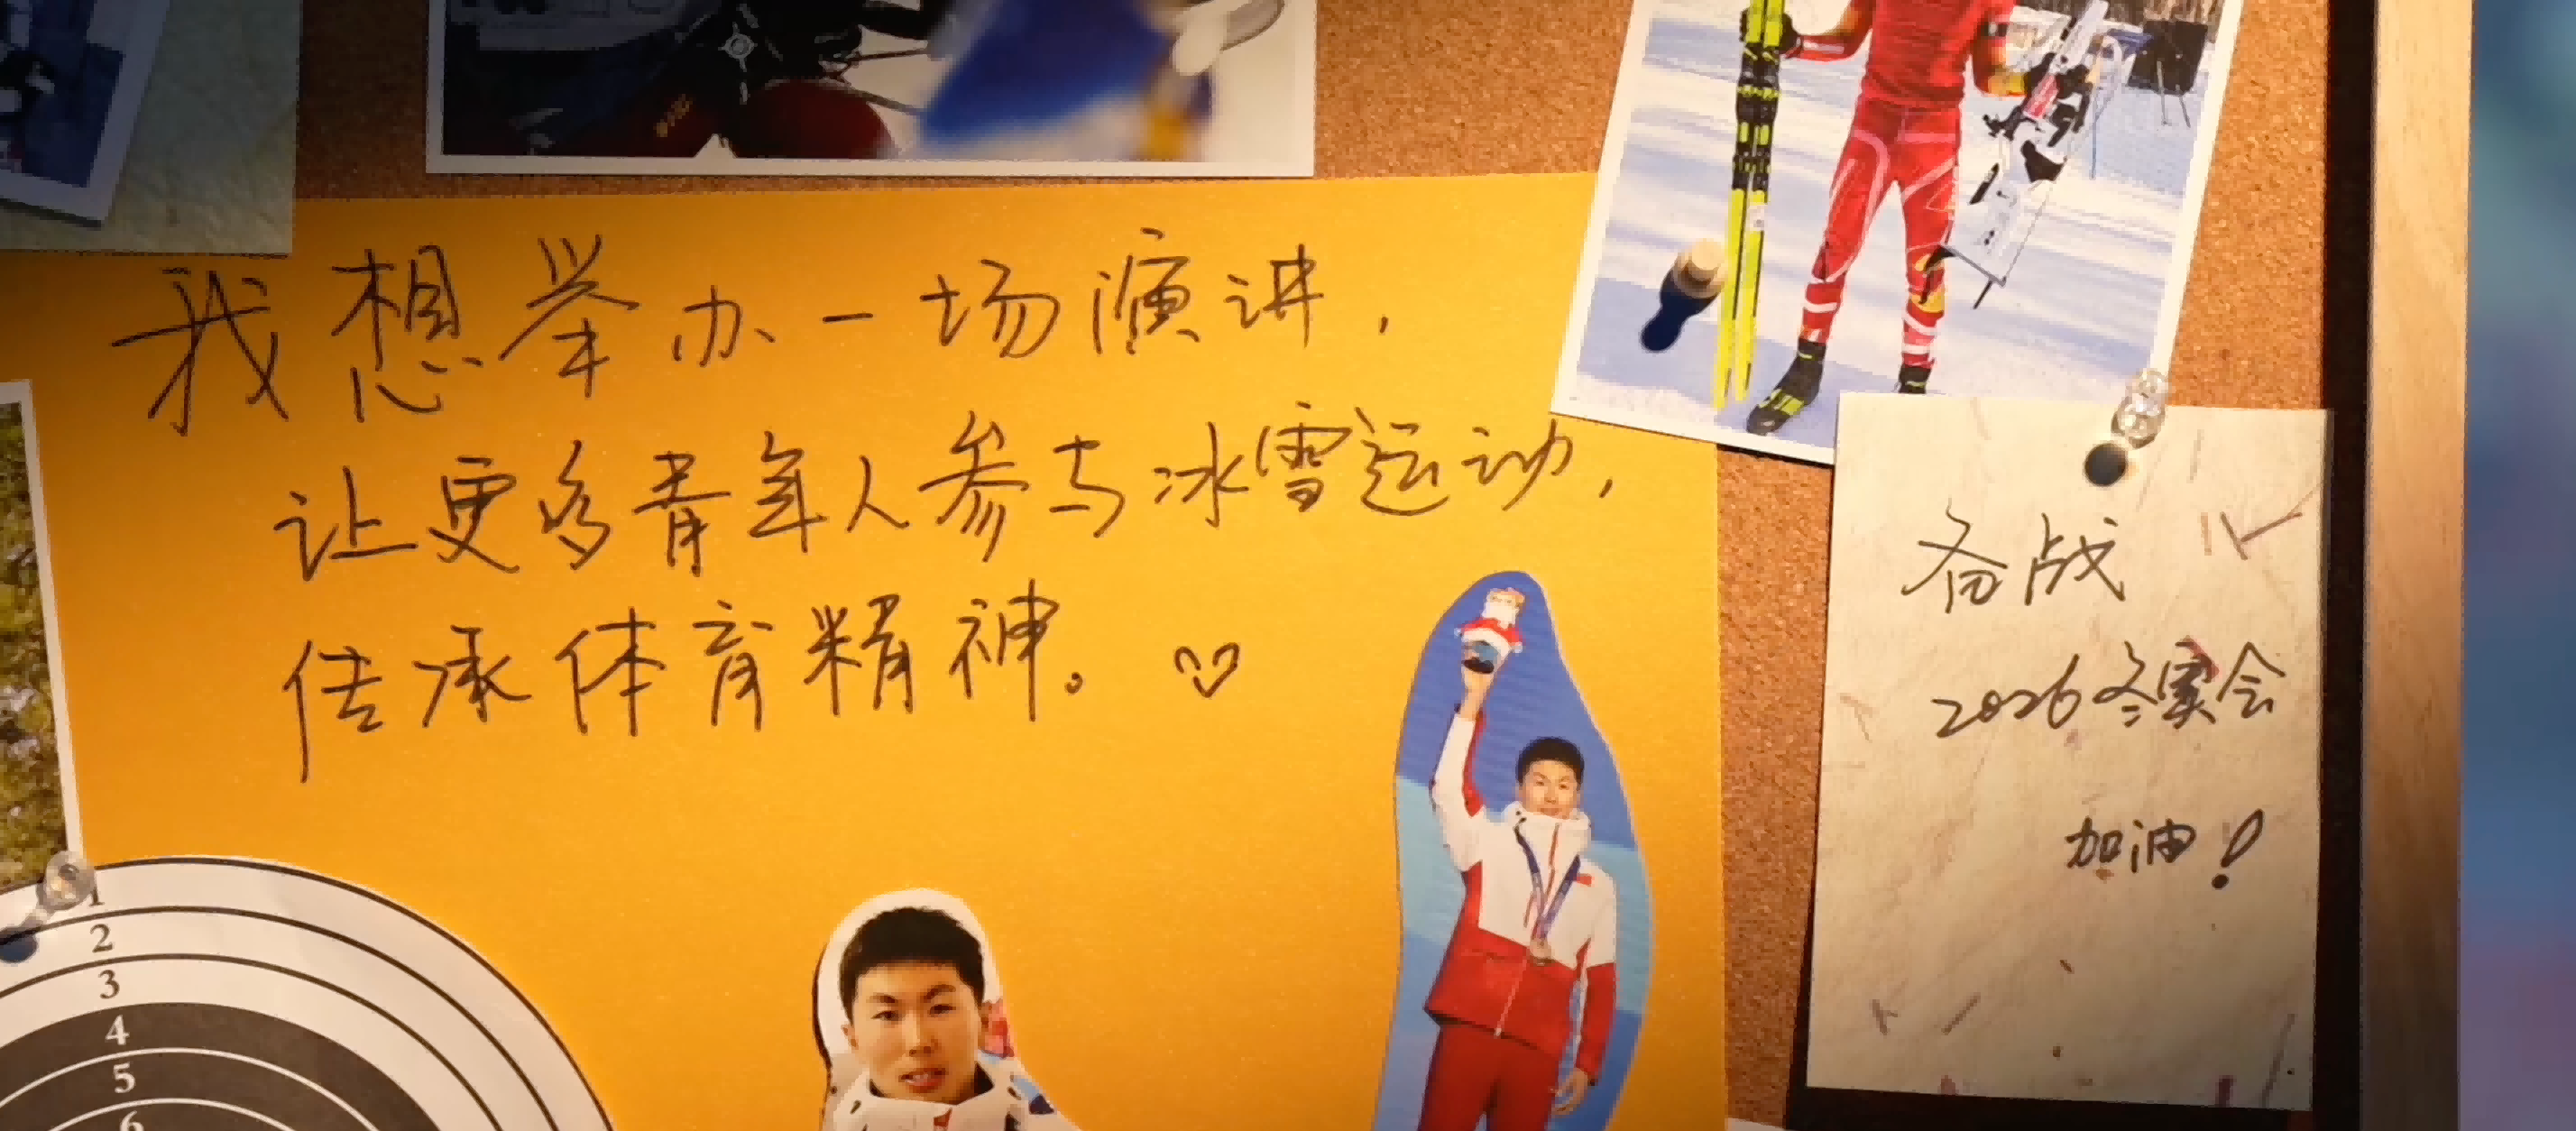 我想举办一场演讲，
让更多青年人参与冰雪运动，
传承体育精神。
备战
2026冬奥会
加油！
1
2
3
4
5
6